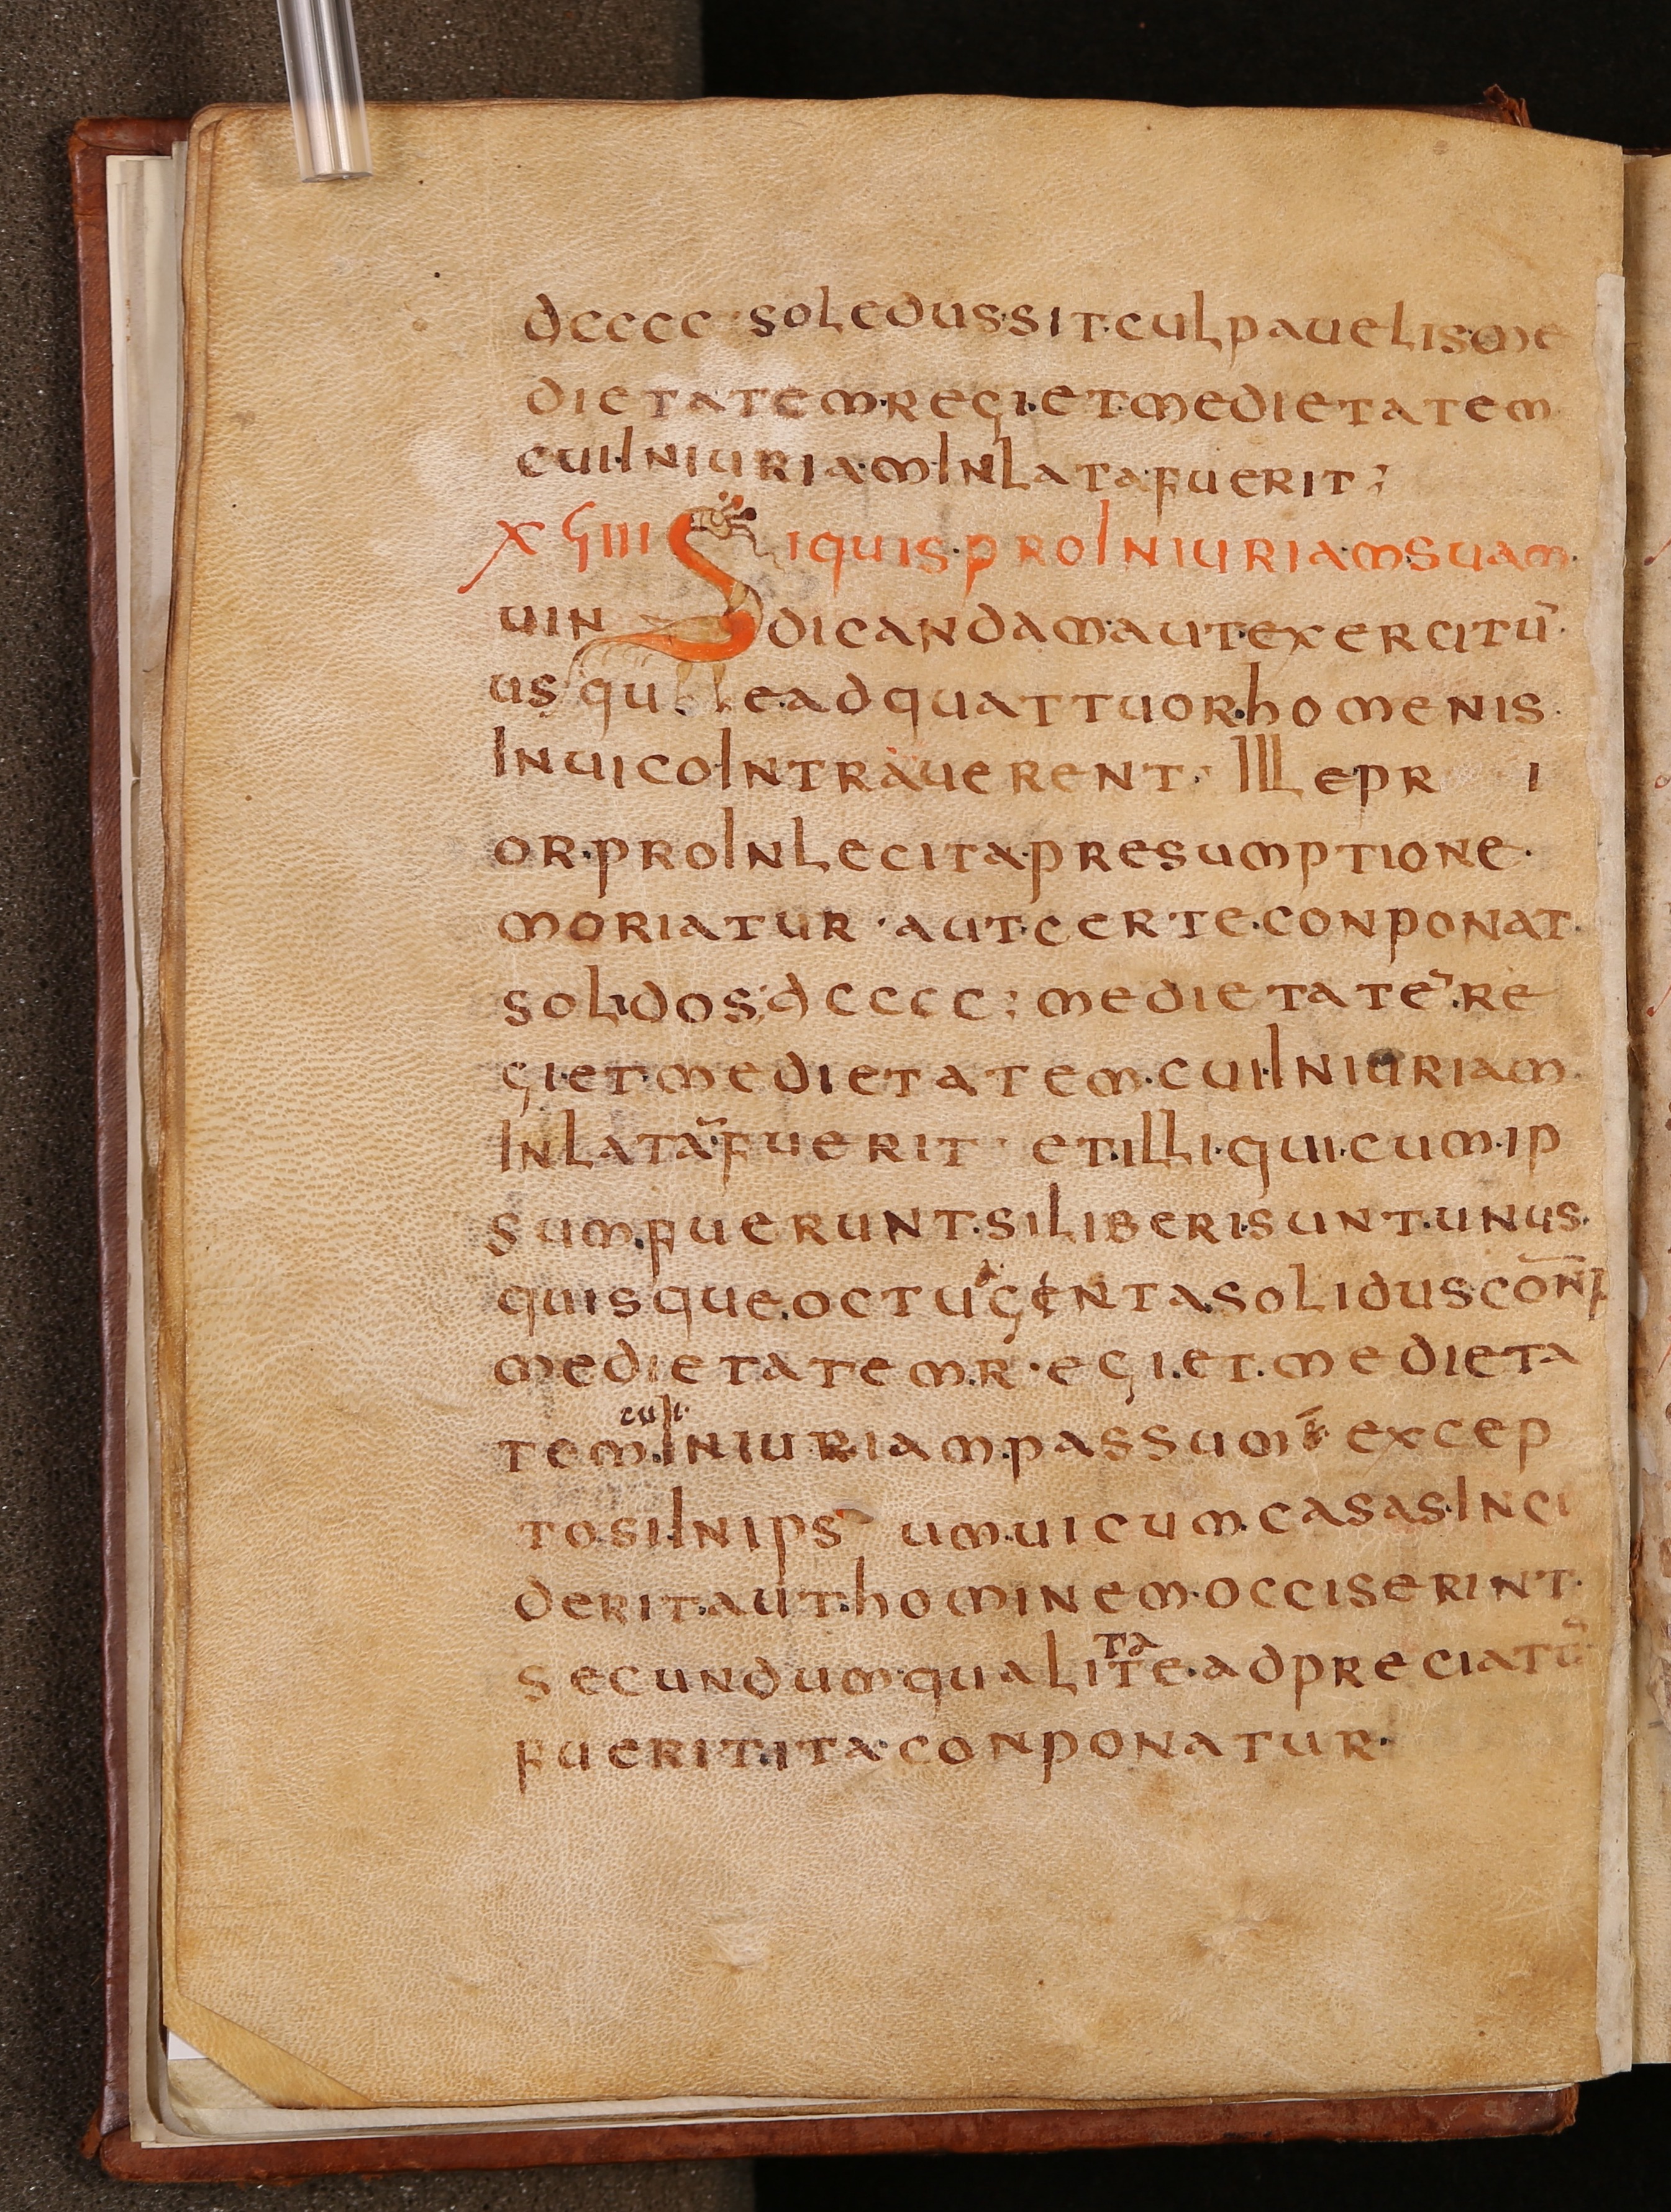 dcccc · soledus·sit·culpauelis·me
dietatem·regi·et·medietatem
cui·iniuriam·inlata·fuerit ;
xϛiiii Siquis·pro iniuriam suam·
uindicandam·aut·exercitū·
usque ad quattuor·homenis·
in uico·intrauerent · ille pr i
or·pro inlecita·presumptione·
moriatur · aut·certe·conponat·
solidos·dcccc ; medietatē·re
gi·et·medietatem·cui·iniuriam·
inlatā·fuerit · et·illi·qui·cum·ip
sum·fuerunt·si liberi·sunt·unus·
quisque·octugenta·solidus·conp̄
medietatem·r·egi·et·medieta
tem·cui·iniuriam·passum ē excep
to·si·in ips um·uicum·casas·inci
derit·aut·hominem·occiserint·
secundum·qualitate·adpreciatū
fuerit·ita·conponatur·